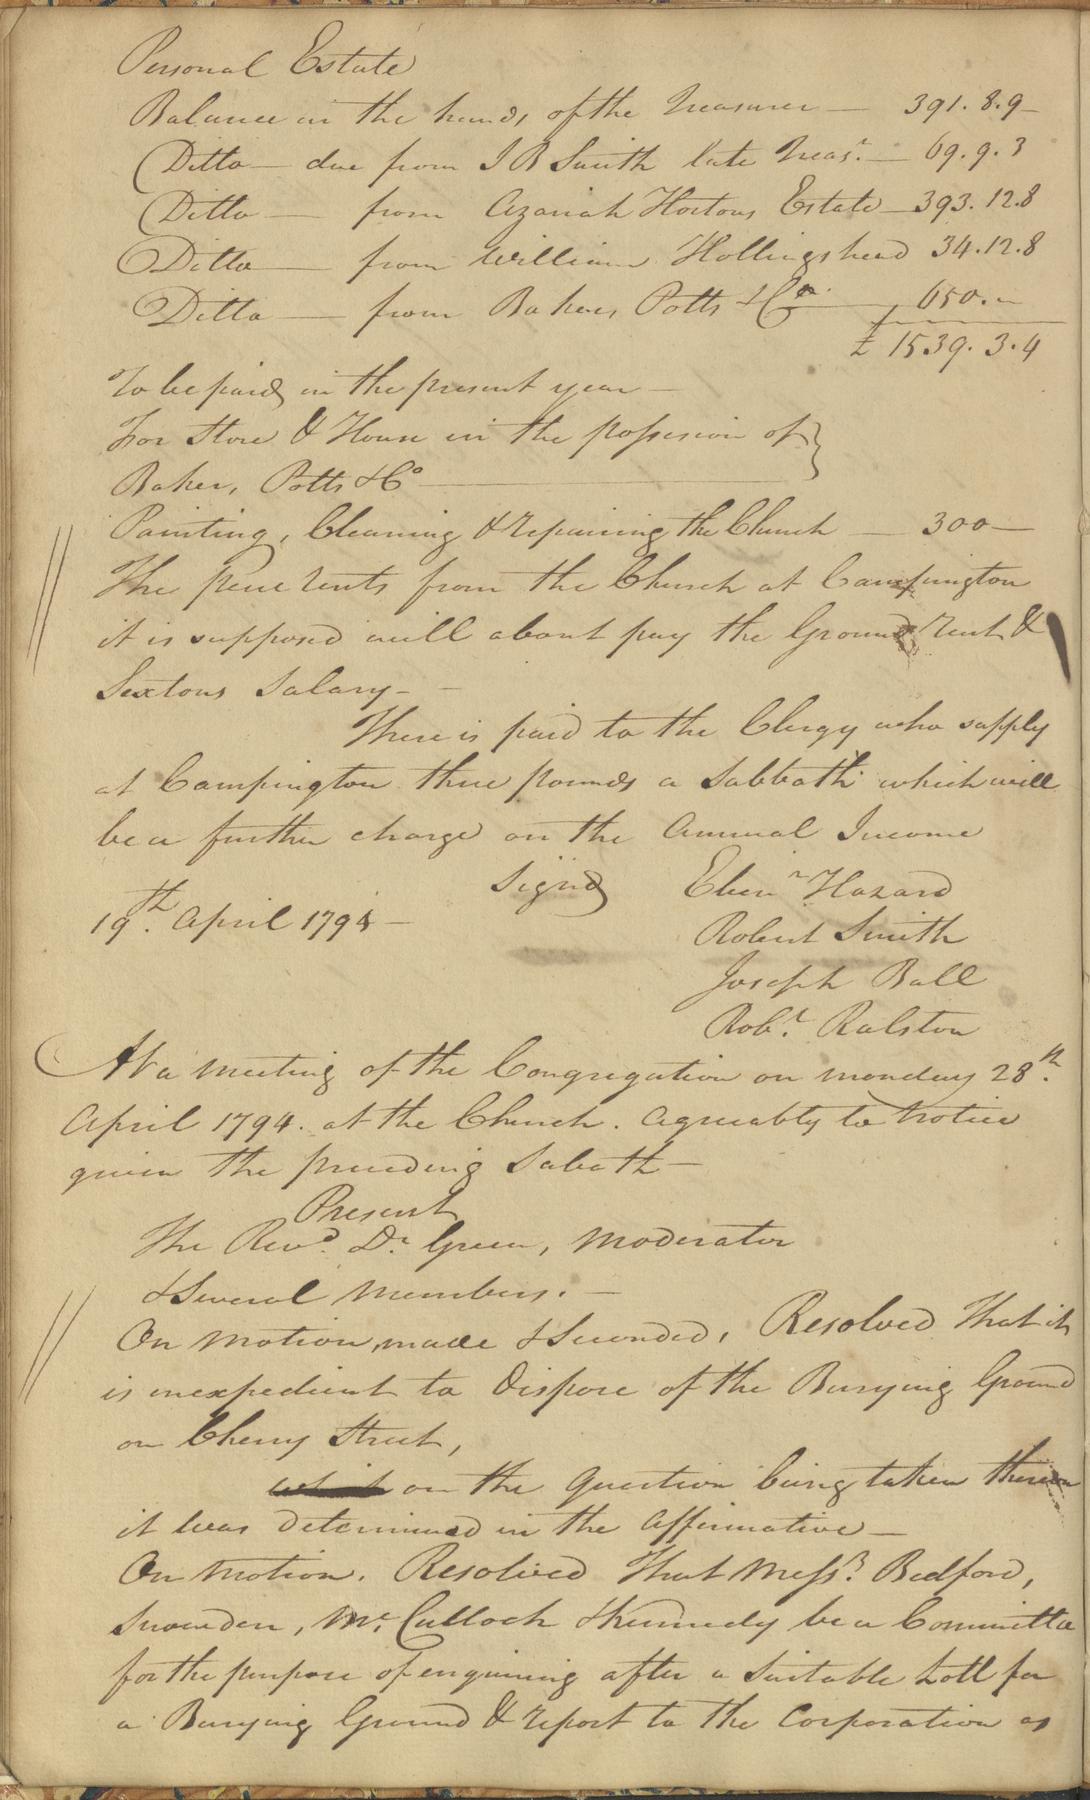 Personal Estate
Balance in the hands of the Treasurer — 391. 8. 9
Ditto — due from I B Smith late Treasr. — 69. 9. 3
Ditto — from Azariah Hortons Estate — 393. 12. 8
Ditto — from William Hollingshead 34. 12. 8
Ditto — from Baker, Potts & Co. — 650. —
£ 1539. 3. 4
To be paid in the present year —
For Store & House in the possession of }
Baker, Potts & Co —
Painting, Cleaning & repairing the Church — 300 —
The pew rents from the Church at Campington
it is supposed will about pay the Ground rent &
Sextons Salary —
There is paid to the Clergy who supply
at Campington three pounds a Sabbath which will
be a further charge on the Annual Income
Signd Ebenr. Hazard
19th. April 1794 —
Robert Smith
Joseph Ball
Robt. Ralston
At a meeting of the Congregation on monday 28th.
April 1794. at the Church. agreeably to Notice
given the preceding Sabath —
Present
The Revd. Dr. Green, Moderator
& Several Members. —
On Motion, made & Seconded, Resolved That it
is inexpedient to dispose of the Burying Ground
on Cherry Street,
on the Question being taken thereon
it was determined in the affirmative —
On Motion. Resolved That Messrs. Bedford,
Snowden, Mc. Culloch & Kennedy be a Committee
for the purpose of enquiring after a Suitable Lott for
a Burying Ground & report to the Corporation as